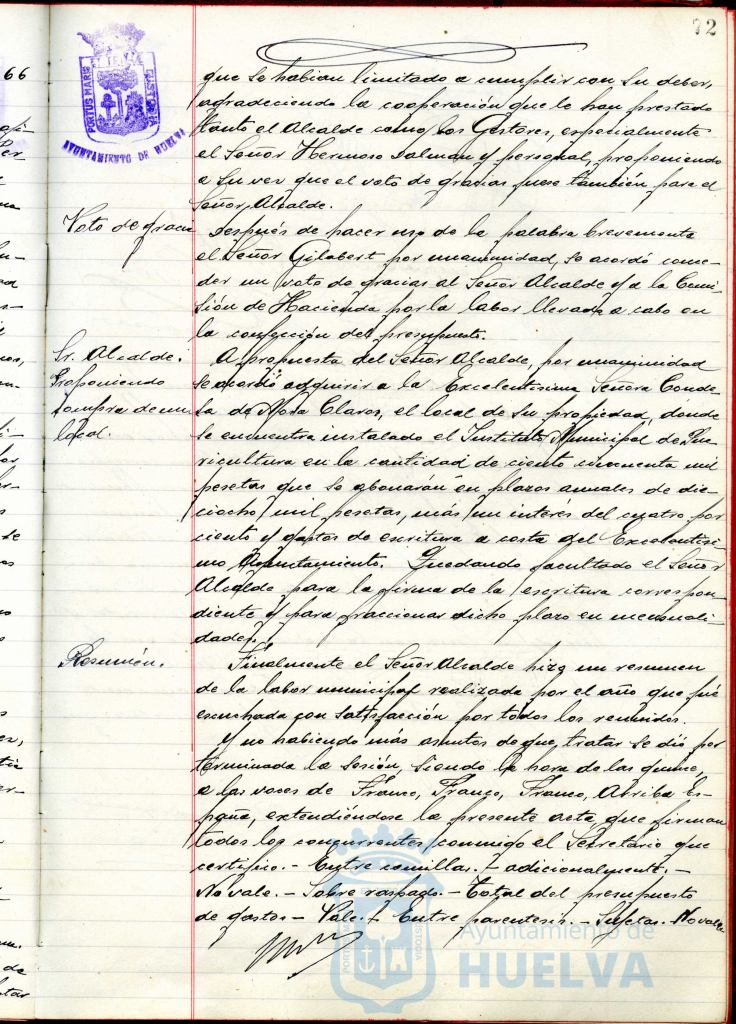 72
66
PORTUS MARIS
CUSTODIA
AYUNTAMIENTO DE HUELVA
que se habian limitado a cumplir con su deber,
agradeciendo la cooperación que le han prestado
tanto el Alcalde como los Gestores, especialmente
el Señor Hermoso y personal, proponiendo
a su vez que el voto de gracias fuese también para el
Señor Alcalde.
Voto de gracia
Después de hacer uso de la palabra brevemente
el Señor Gilabert por unanimidad, se acordó conce-
der un voto de gracias al Señor Alcalde y a la Comi-
sión de Hacienda por la labor llevada a cabo en
la confección del presupuesto.
Sr. Alcalde.
Proponiendo
compra de un
local.
A propuesta del Señor Alcalde, por unanimidad
se acordó adquirir a la Excelentísima Señora Conde-
sa de Mora Claros, el local de su propiedad, donde
se encuentra instalado el Instituto Municipal de Pue-
ricultura en la cantidad de ciento cincuenta mil
pesetas que se abonarán en plazos anuales de die-
ciocho mil pesetas, más un interés del cuatro por
ciento y gastos de escritura a costa del Excelentísi-
mo Ayuntamiento. Quedando facultado el Señor
Alcalde para la firma de la escritura correspon-
diente y para fraccionar dicho plazo en mensuali-
dades.
Resumén.
Finalmente el Señor Alcalde hizo un resumen
de la labor municipal realizada por el año que fué
escuchada con satisfacción por todos los reunidos.
Y no habiendo más asuntos de que tratar se dió por
terminada la sesión, siendo la hora de las quince,
a las voces de Franco, Franco, Franco, Arriba Es-
paña, extendiéndose la presente acta, que firman
todos los concurrentes conmigo el Secretario que
certifico.- Entre comillas.- adicionalmente.-
No vale.- Sobre raspado.- Total del presupuesto
de gastos- Vale.- Entre parentesis.- Sujetar. No vale
Ayuntamiento de
HUELVA